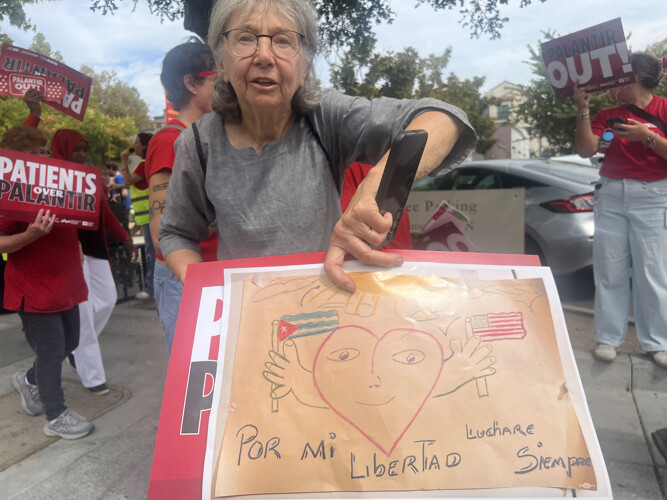 PALANTIR
OUT
PA
PALANTIR
OUT!
PATIENTS
OVER
PALANTIR
Parking
P
P
POR MI LIBERTAD
LUCHARE
SIEMPRE